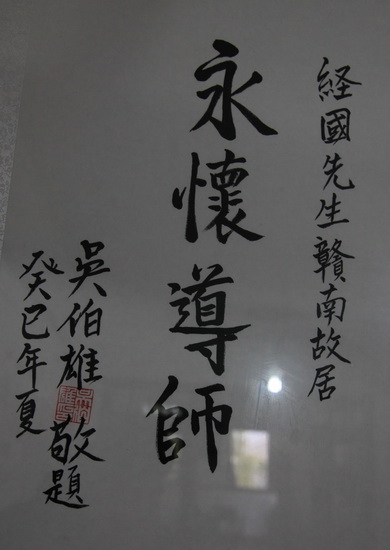 経國先生贛南故居
永懷導師
吳伯雄敬題
癸巳年夏